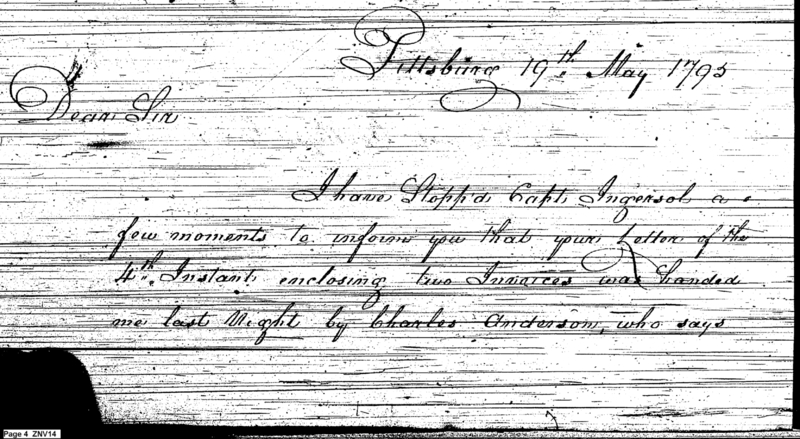 Pittsburg 19th May 1795
Dear Sir
I have Stopp'd Capt Ingersol a
few moments to inform you that your Letter of the
4th Instant enclosing two Invoices was handed
me last Night by Charles Anderson, who says
Page 4 ZNV14